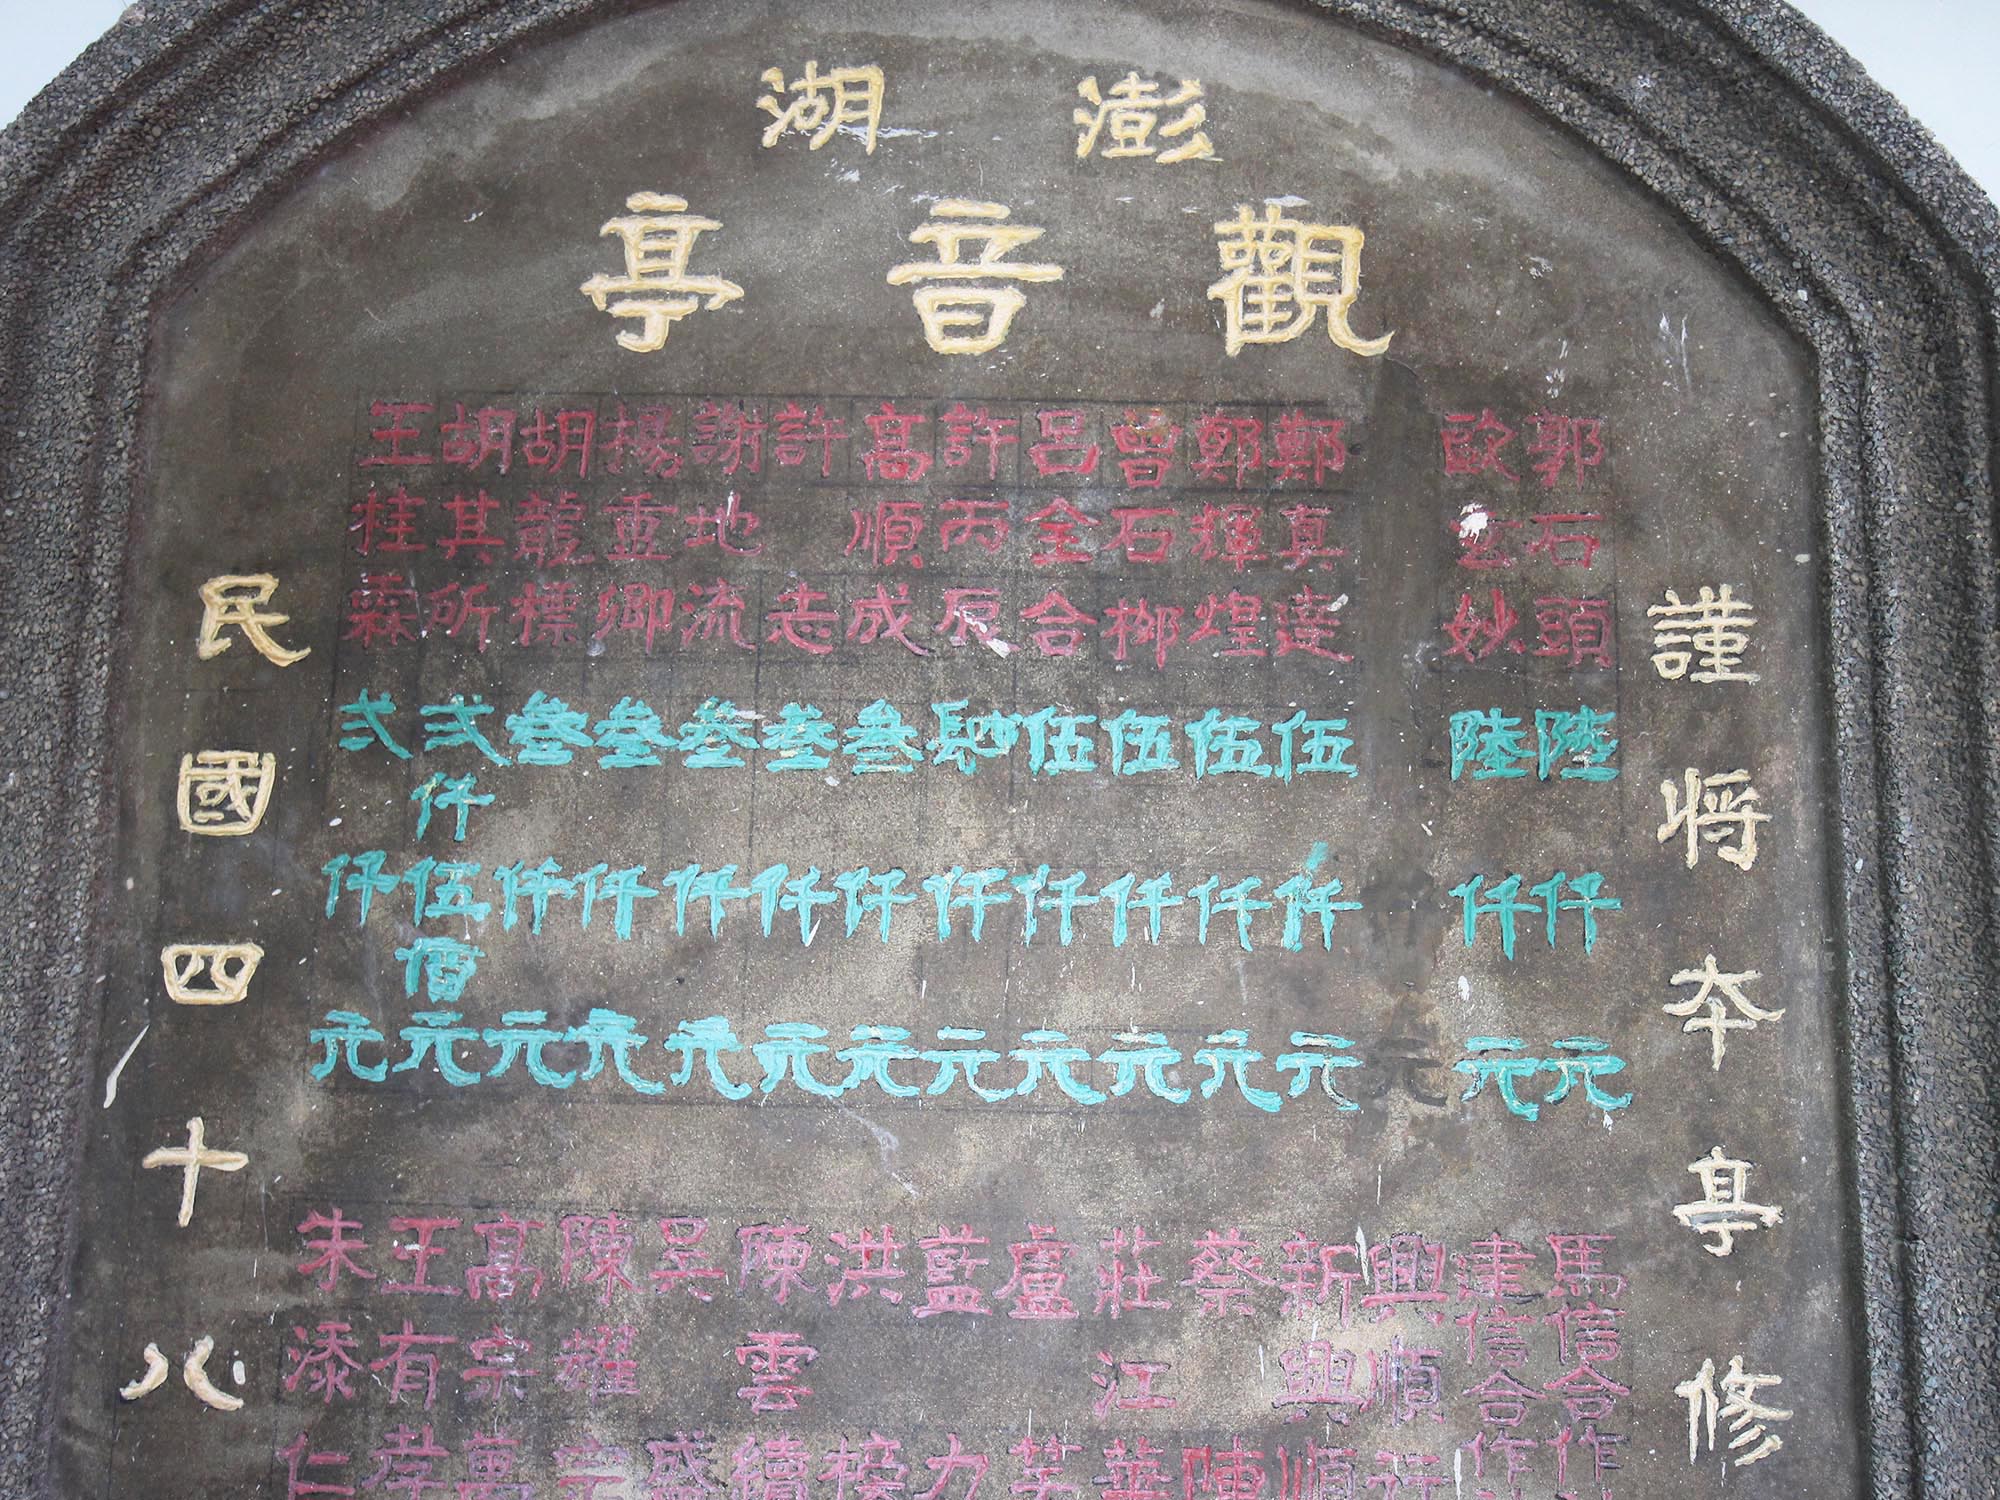 澎湖
觀音亭
謹將本亭修
郭石頭陸仟元
歐玄妙陸仟元
鄭真達伍仟元
鄭輝煌伍仟元
曾石榔伍仟元
呂全合伍仟元
許丙辰肆仟元
高順成叁仟元
許志叁仟元
謝地流叁仟元
楊重卿叁仟元
胡龍標叁仟元
胡其所弍仟伍佰元
王桂霖弍仟元
馬信合作
建信合作
興順行
新興順
蔡陳
莊江華
盧芳
藍力
洪榜
陳雲續
吳盛
陳耀宗
高宗萬
王有孝
朱添仁
民國四十八